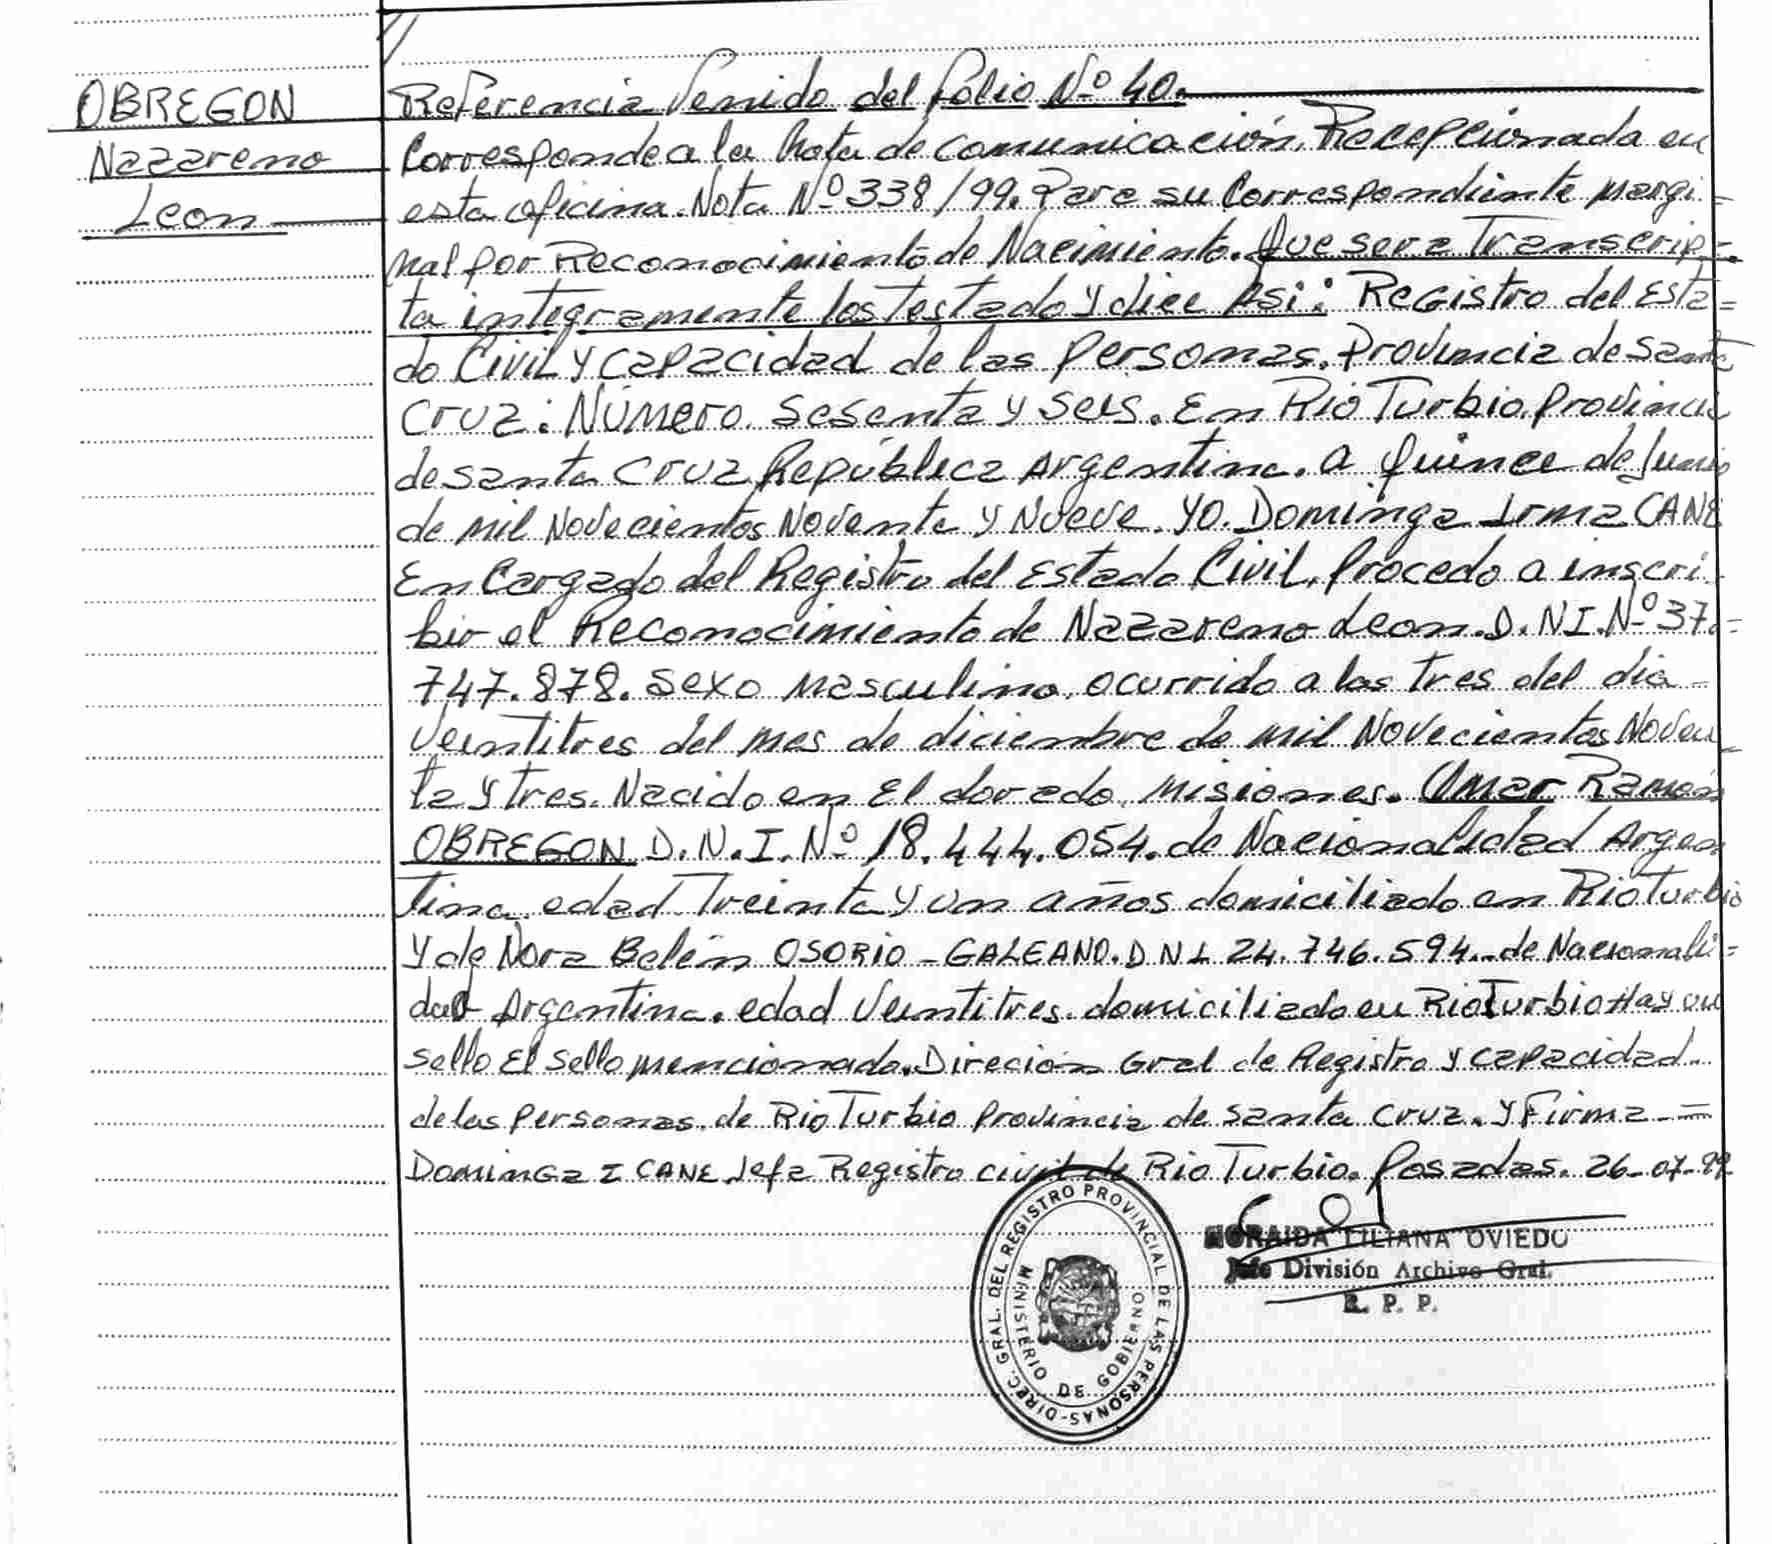 OBREGON
Nazareno
Leon
Referencia Venido del folio Nº 40.
Corresponde a la Nota de Comunicación. Recepcionada en
esta oficina. Nota Nº 338/99. Para su Correspondiente Margi=
nal por Reconocimiento de Nacimiento. Que sera Transcrip=
ta integramente los Testado y dice Asi: Registro del Esta=
do Civil y Capacidad de las Personas. Provincia de Santa
Cruz: Número Sesenta y Seis. En Rio Turbio. Provincia
de Santa Cruz República Argentina. a quince de Junio
de mil Novecientos Noventa y Nueve. Yo. Dominga Irma CANE
Encargado del Registro del Estado Civil, Procedo a inscri
bir el Reconocimiento de Nazareno Leon. D.N.I. Nº 37.=
747.878. Sexo Masculino. ocurrido a las Tres del dia
Veintitres del mes de diciembre de mil Novecientos Noven
ta y Tres. Nacido en El dorado. Misiones. Omar Ramón
OBREGON D.N.I. Nº 18.444.054. de Nacionalidad Argen
tina. edad Treinta y un años domiciliado en Rio Turbio
y de Nora Belén OSORIO - GALEANO. D N I 24.746.594. de Nacionali=
dad Argentina. edad Veintitres. domiciliado en Rio Turbio Hay un
sello El sello mencionado. Direción Gral de Registro y Capacidad
de las Personas. de Rio Turbio Provincia de Santa Cruz. y Firma =
Dominga I CANE Jefa Registro civil de Rio Turbio. Posadas. 26-07-99
DIREC. GRAL. DEL REGISTRO PROVINCIAL DE LAS PERSONAS
MINISTERIO DE GOBIERNO
LILIANA OVIEDO
Jefe División Archivo Gral.
R. P. P.